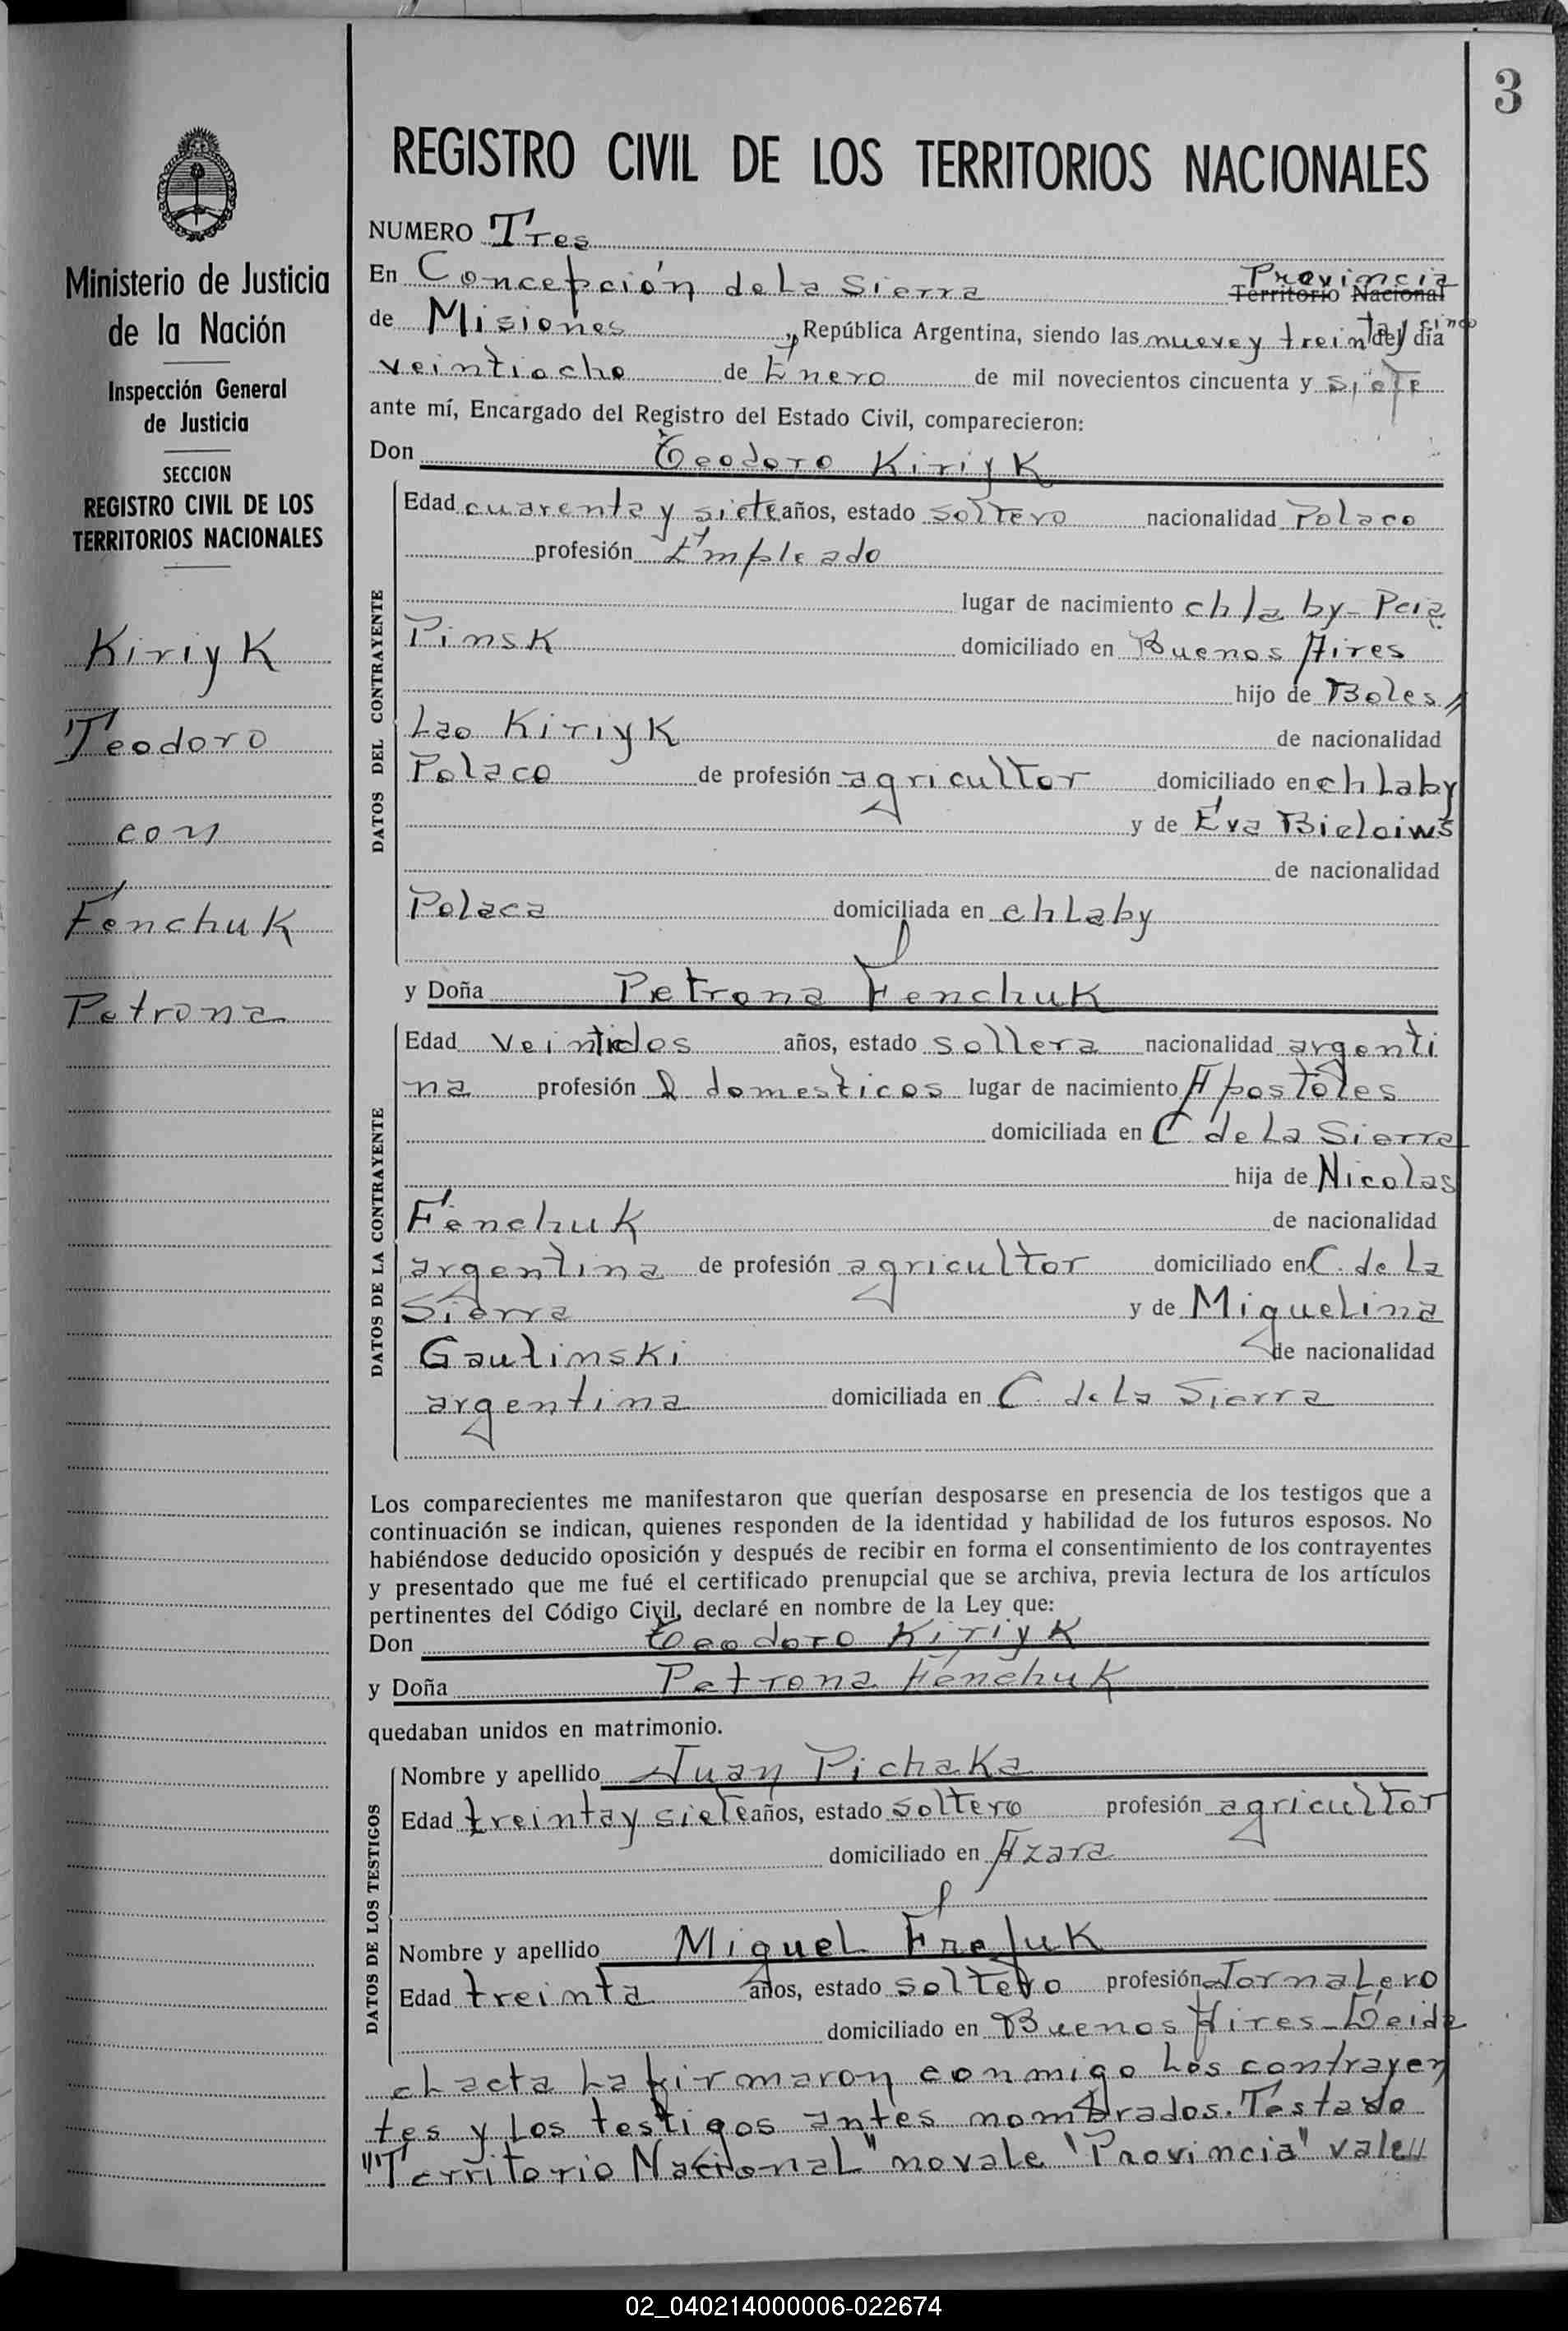 3
REGISTRO CIVIL DE LOS TERRITORIOS NACIONALES
Ministerio de Justicia
de la Nación
Inspección General
de Justicia
SECCION
REGISTRO CIVIL DE LOS
TERRITORIOS NACIONALES
Kiriyk
Teodoro
con
Fenchuk
Petrona
NUMERO Tres
Provincia
En Concepción de La Sierra Territorio Nacional
de Misiones, República Argentina, siendo las nueve y treinta y cinco del día
veintiocho de Enero de mil novecientos cincuenta y siete
ante mí, Encargado del Registro del Estado Civil, comparecieron:
Don Teodoro Kiriyk
DATOS DEL CONTRAYENTE
Edad cuarenta y siete años, estado soltero nacionalidad Polaco
profesión Empleado
lugar de nacimiento chlaby-Pcia
Pinsk domiciliado en Buenos Aires
hijo de Boles//
Lao Kiriyk de nacionalidad
Polaco de profesión agricultor domiciliado en chLaby
y de Eva Bieloiws
de nacionalidad
Polaca domiciliada en chLaby
y Doña Petrona Fenchuk
DATOS DE LA CONTRAYENTE
Edad veintidos años, estado soltera nacionalidad argenti
na profesión Q. domesticos lugar de nacimiento Apostoles
domiciliada en C de La Sierra
hija de Nicolas
Fenchuk de nacionalidad
argentina de profesión agricultor domiciliado en C. de La
Sierra y de Miguelina
Gautinski de nacionalidad
argentina domiciliada en C. de La Sierra
Los comparecientes me manifestaron que querían desposarse en presencia de los testigos que a
continuación se indican, quienes responden de la identidad y habilidad de los futuros esposos. No
habiéndose deducido oposición y después de recibir en forma el consentimiento de los contrayentes
y presentado que me fué el certificado prenupcial que se archiva, previa lectura de los artículos
pertinentes del Código Civil, declaré en nombre de la Ley que:
Don Teodoro Kiriyk
y Doña Petrona Fenchuk
quedaban unidos en matrimonio.
DATOS DE LOS TESTIGOS
Nombre y apellido Juan Pichaka
Edad treinta y siete años, estado soltero profesión agricultor
domiciliado en Azara
Nombre y apellido Miguel
Edad treinta años, estado soltero profesión Jornalero
domiciliado en Buenos Aires-Leida
el acta La firmaron conmigo Los contrayen
tes y Los testigos antes nombrados. Testado
"Territorio Nacional" no vale "Provincia" vale//
02_040214000006-022674